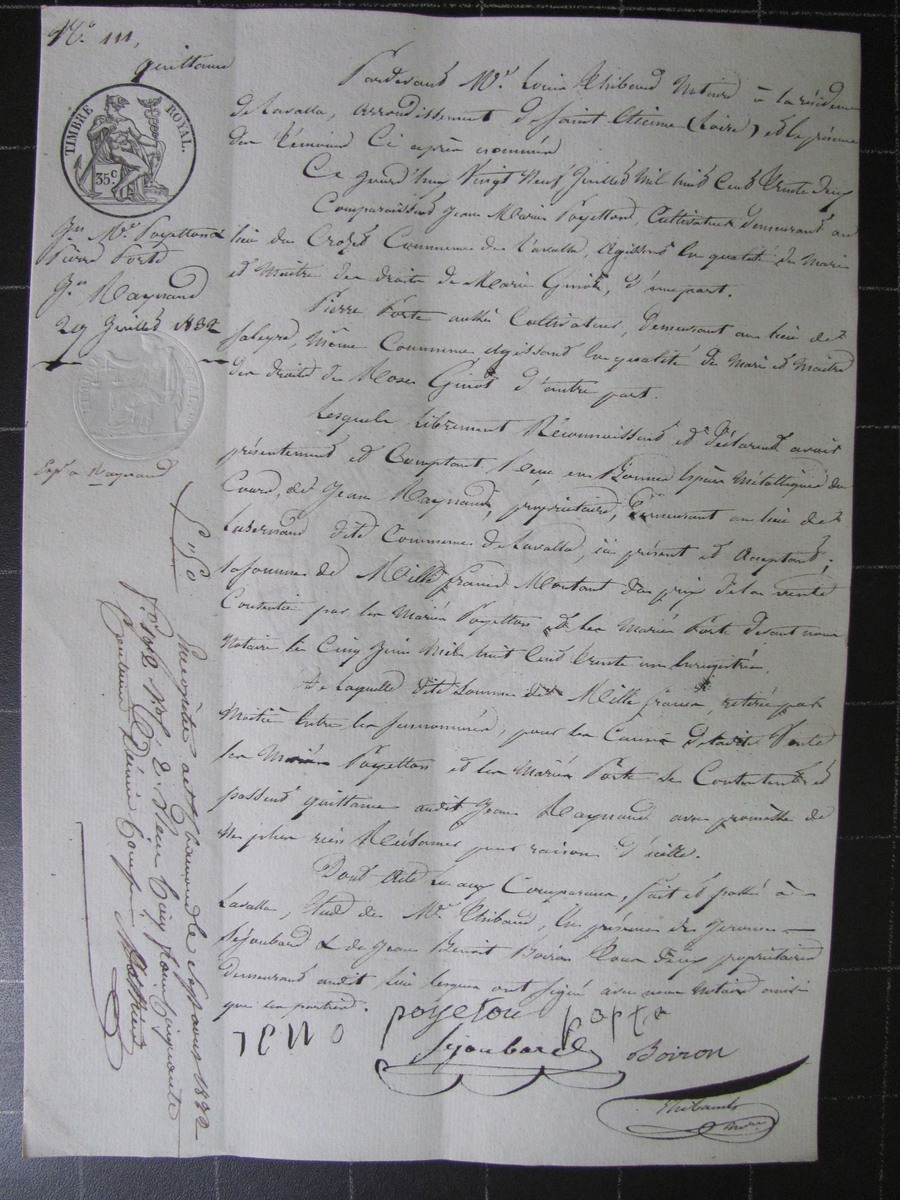 N.o 111,
quittance
TIMBRE ROYAL.
35 c
Jn Mie Poyetton &
Pierre Porte
à
Jn Raynaud
29 Juillet 1832
Expn a Raynaud
Pardevant Mre Louis Thibaud Notaire à la résidence
de Lavalla, arrondissement de Saint Etienne (Loire) et en présence
des témoins ci après nommés
Ce jourd'huy Vingt Neuf Juillet Mil huit Cent trente deux
Comparaissent Jean Marie Poyetton, Cultivateur demeurant au
lieu du Crozet Commune de Lavalla, agissant en qualité de Mari
et Maitre des droits de Marie Ginot, d'une part.
Pierre Porte aussi Cultivateur, demeurant au lieu de
Saleyre, Même Commune agissant en qualité de Mari et Maitre
des droits de Rose Ginot d'autre part.
Lesquels librement Réconnaissent et déclarent avoir
présentement et Comptant, Reçu en Bonnes Espèces Métalliques du
Cours, de Jean Raynaud, propriétaire, demeurant au lieu de
Luzernaud dite Commune de Lavalla, ici présent et Acceptant;
la somme de Mille francs Montant du prix de la vente
Consentie par les Mariés Poyetton et les Mariés Porte devant nous
Notaire le Cinq Juin Mil huit Cent trente un Enregistrée
De laquelle dite Somme de Mille francs, retirée par
Moitié Entre les susnommés, pour les Causes
les Mariés Poyetton et les Mariés Porte se Contentent et
passent quittance audit Jean Raynaud avec promesse de
ne plus rien Réclamer pour raison d'icelle.
Dont Acte Lu aux Comparans, fait et passé à
Lavalla, Etude de Mre Thibaud, En présence de Jerome
Séjoubard & de Jean Benoit Boiron tous deux propriétaires
demeurant audit lieu lesquels ont signé avec nous Notaire ainsi
que les parties.
reno poyeton porte
Sejoubard Boiron
Thibaud
Nore
Enregistré à St Chamond le Sept aout 1832
Reçu Cinq francs Cinquante
Centimes Décime Compris